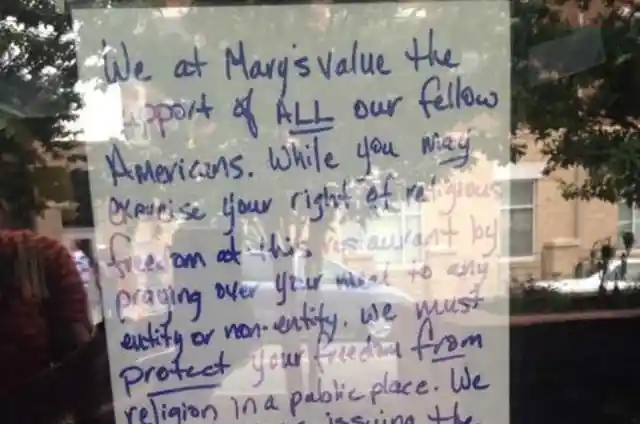 We at Mary's value the
support of ALL our fellow
Americans. While you may
exercise your right of religious
freedom at this restaurant by
praying over your meal to any
entity or non-entity, we must
protect your freedom from
religion in a public place. We
issuing the